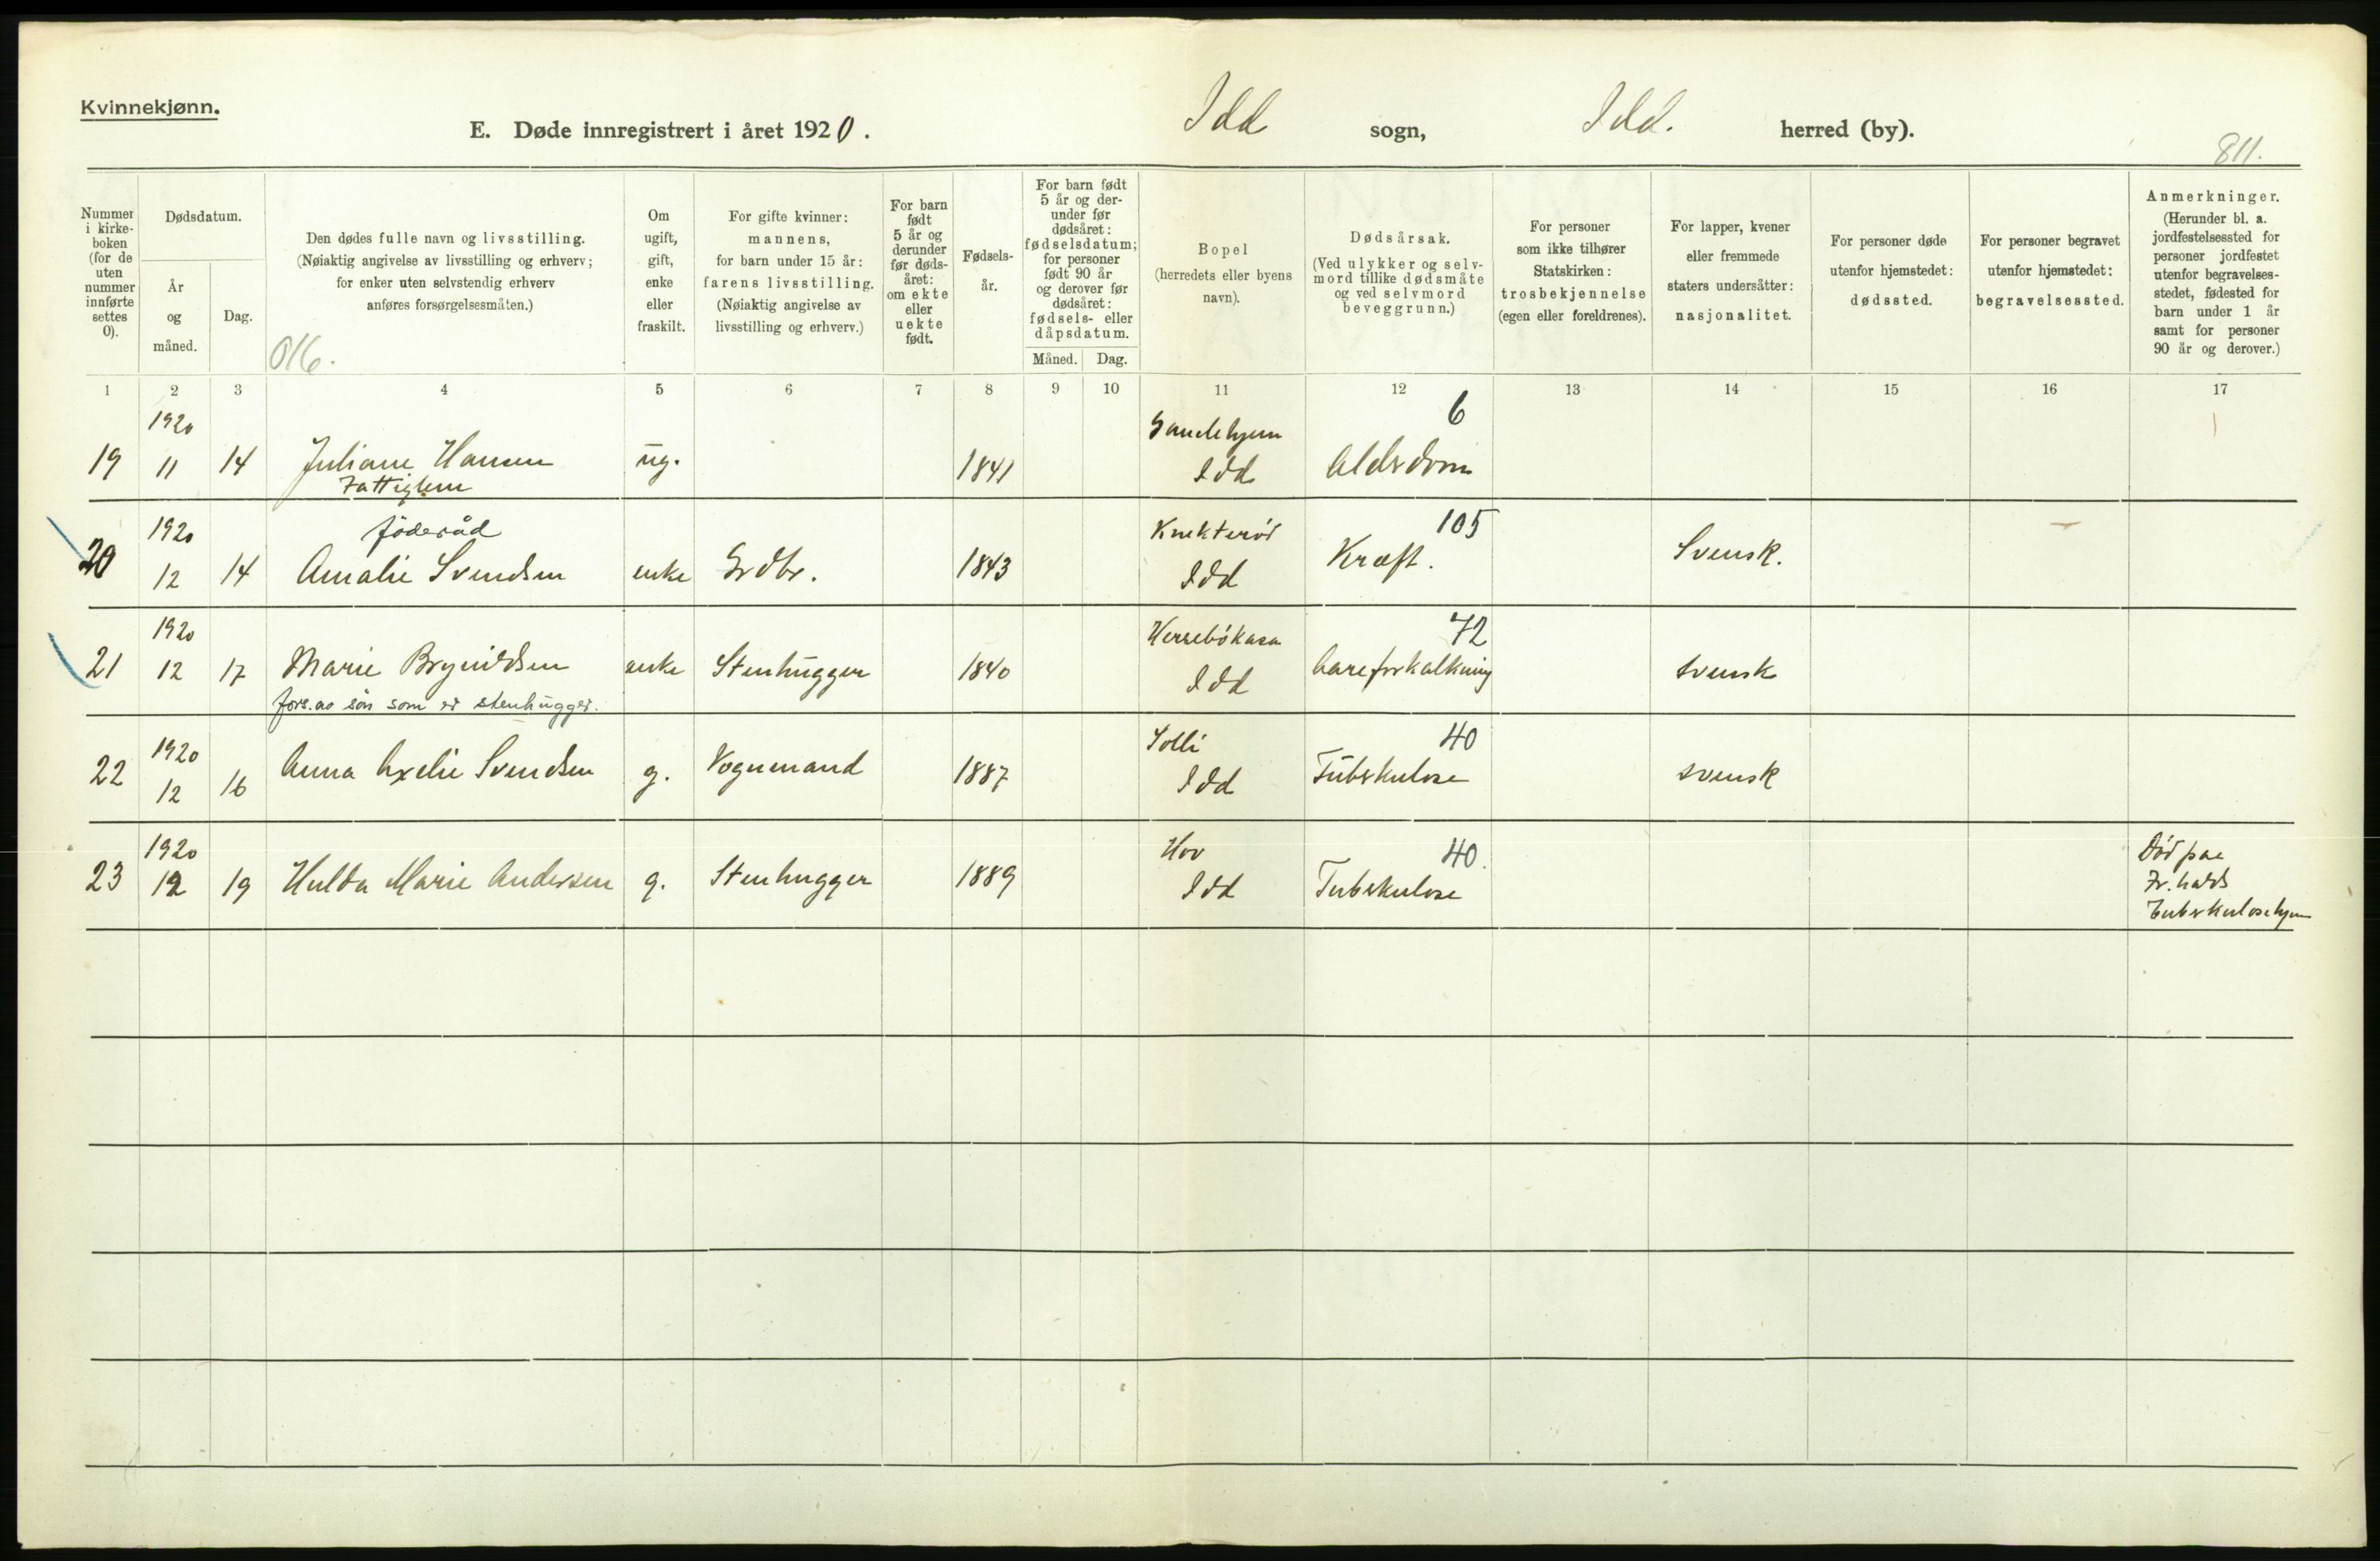 Kvinnekjønn.
E. Døde innregistrert i året 1920.
Idd sogn, Idd. herred (by).
811.
Nummer
i kirke-
boken
(for de
uten
nummer
innførte
settes
0).
Dødsdatum.
År
og
måned.
Dag.
Den dødes fulle navn og livsstilling.
(Nøiaktig angivelse av livsstilling og erhverv;
for enker uten selvstendig erhverv
anføres forsørgelsesmåten.)
016.
Om
ugift,
gift,
enke
eller
fraskilt.
For gifte kvinner:
mannens,
for barn under 15 år:
farens livsstilling.
(Nøiaktig angivelse av
livsstilling og erhverv.)
For barn
født
5 år og
derunder
før døds-
året:
om ekte
eller
uekte
født.
Fødsels-
år.
For barn født
5 år og der-
under før
dødsåret:
fødselsdatum;
for personer
født 90 år
og derover før
dødsåret:
fødsels- eller
dåpsdatum.
Måned. Dag.
Bopel
(herredets eller byens
navn).
Dødsårsak.
(Ved ulykker og selv-
mord tillike dødsmåte
og ved selvmord
beveggrunn.)
For personer
som ikke tilhører
Statskirken:
trosbekjennelse
(egen eller foreldrenes).
For lapper, kvener
eller fremmede
staters undersåtter:
nasjonalitet.
For personer døde
utenfor hjemstedet:
dødssted.
For personer begravet
utenfor hjemstedet:
begravelsessted.
Anmerkninger.
(Herunder bl. a.
jordfestelsessted for
personer jordfestet
utenfor begravelses-
stedet, fødested for
barn under 1 år
samt for personer
90 år og derover.)
1 2 3 4 5 6 7 8 9 10 11 12 13 14 15 16 17
1920 6
19 11 14 Juliane Hansen ug. 1841 Idd Alderdom
Fattiglem
1920 föderåd Knekterød 105
20 12 14 Amalie Svendsen enke Grdbr. 1843 Idd Kræft. Svensk.
1920 Herrebökasa 72
21 12 17 Marie Brynildsen enke Stenhugger 1840 Idd Aareforkalkning svensk
fors. av sön som er stenhugger.
1920 Solli 40
22 12 16 Anna Axelie Svendsen g. Vognmand 1887 Idd Tuberkulose svensk
1920 Hov 40. Död paa
23 12 19 Hulda Marie Andersen g. Stenhugger 1889 Idd Tuberkulose Fr.halds
Tuberkulosehjem